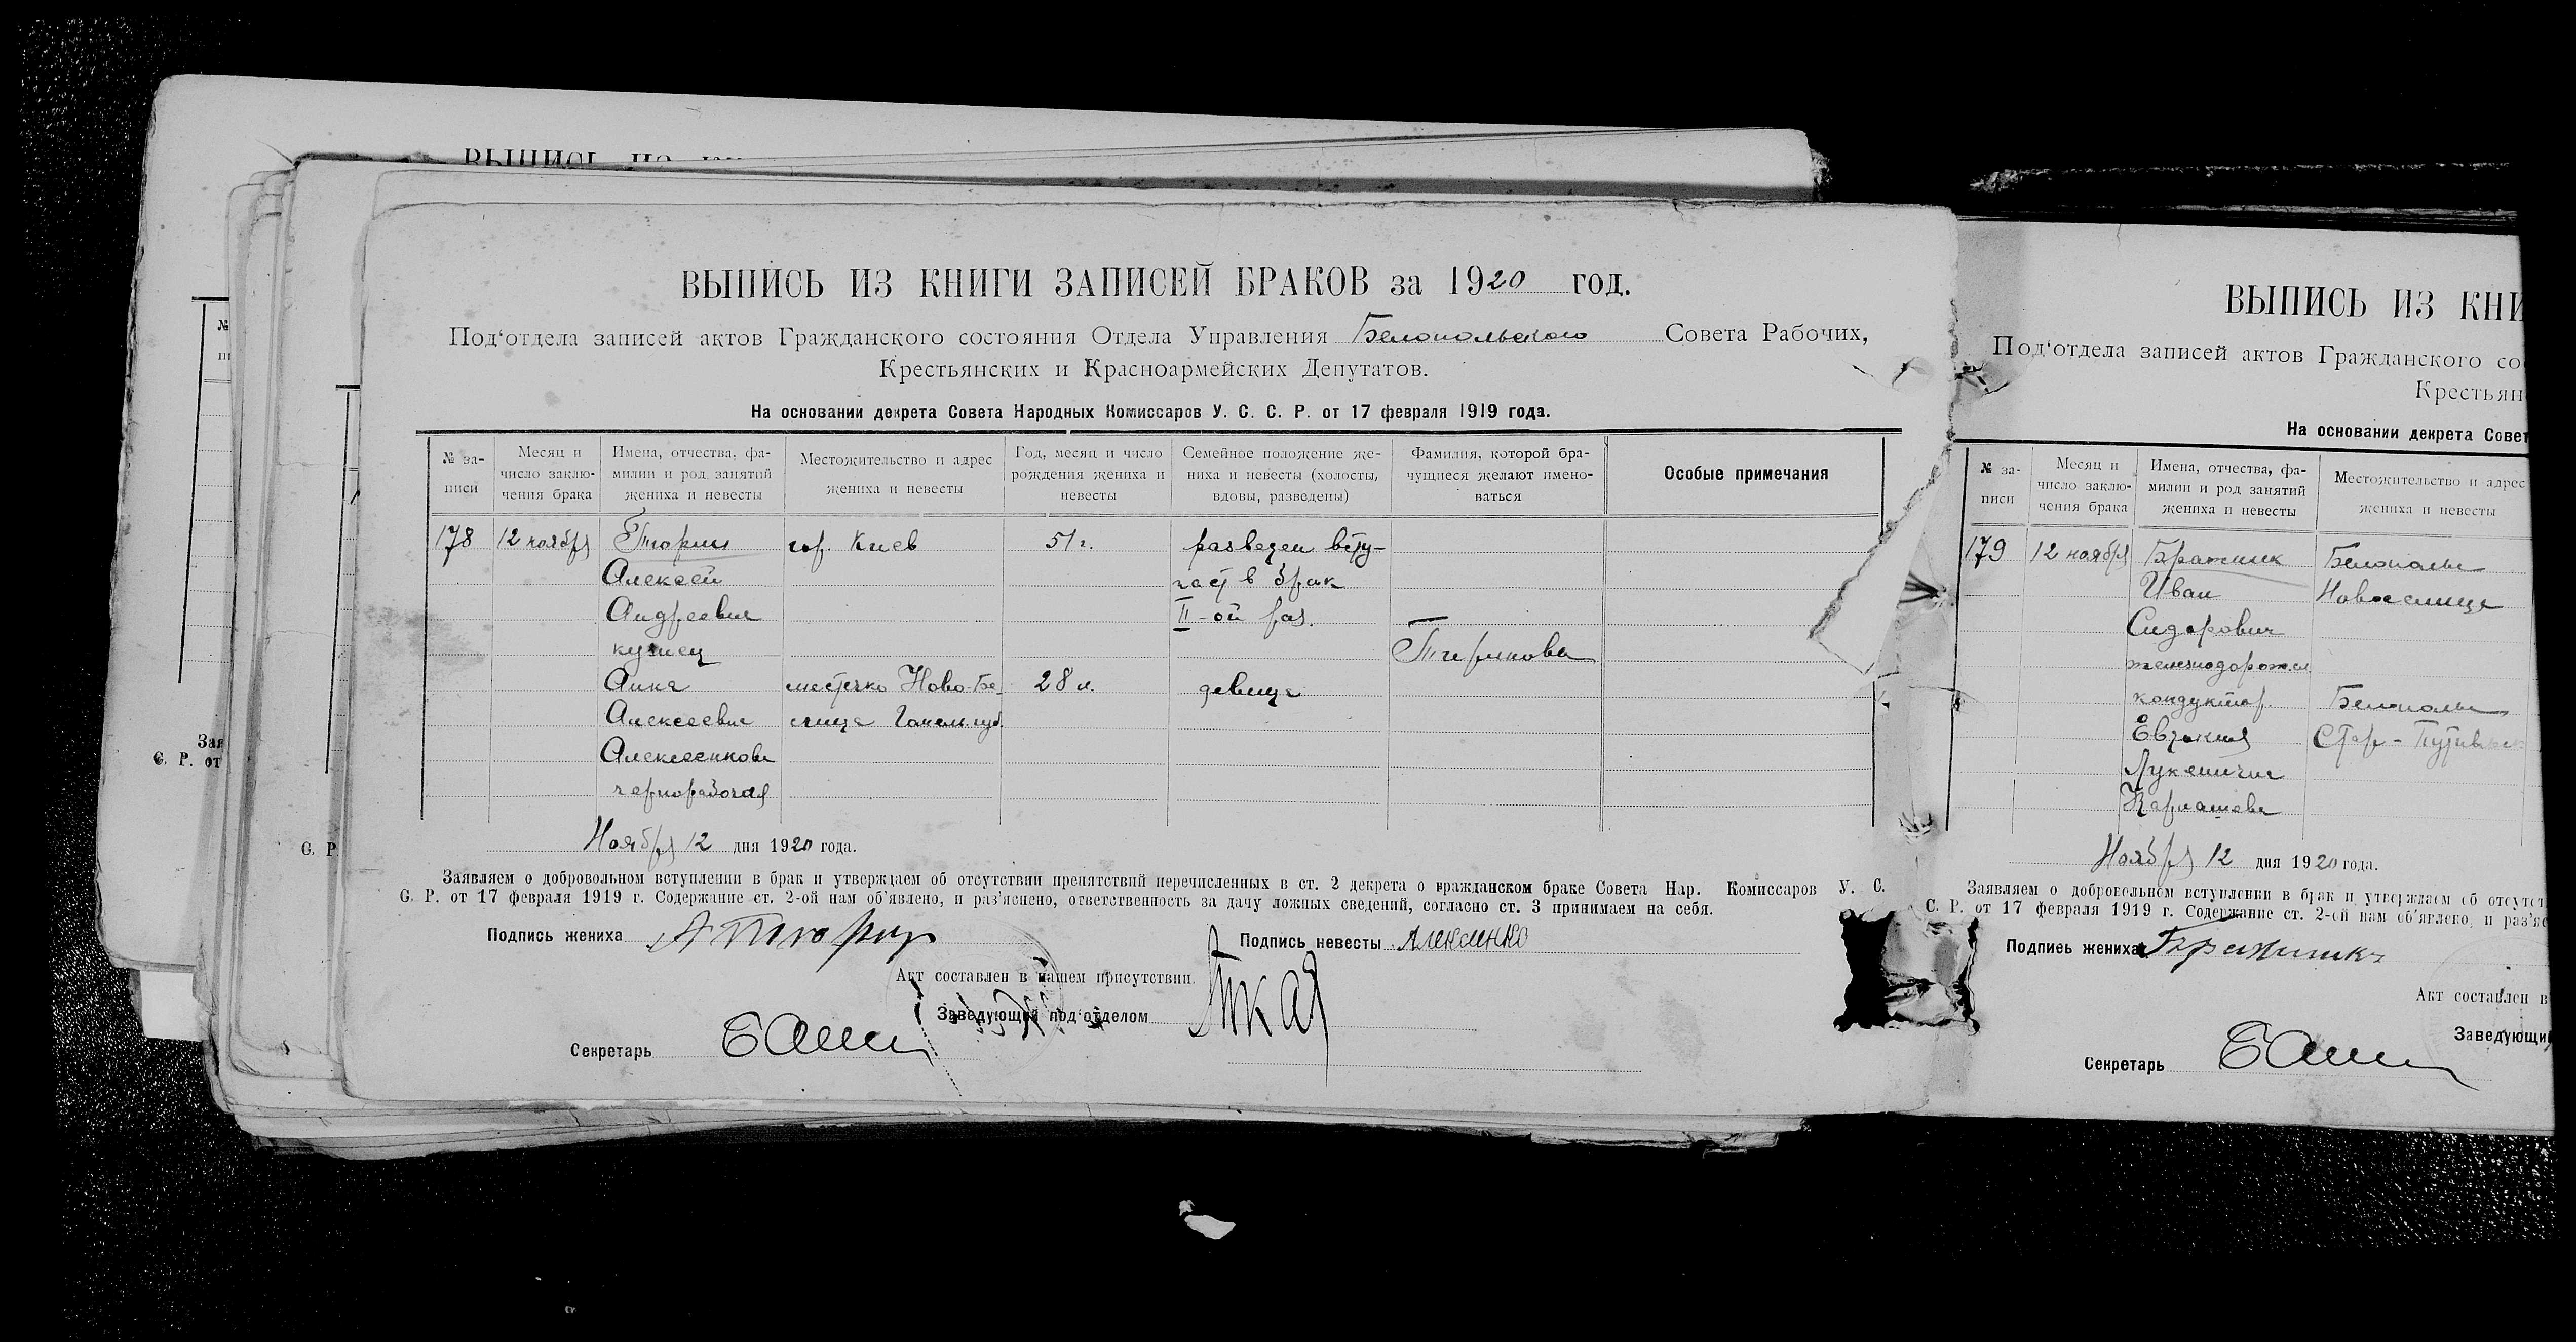 ВЫПИСЬ ИЗ КНИГИ ЗАПИСЕЙ БРАКОВ за 1920 год.
Под‘отдела записей актов Гражданского состояния Отдела Управления Белопольского Совета Рабочих,
Крестьянских и Красноармейских Депутатов.
На основании декрета Совета Народных Комиссаров У. С. С. Р. от 17 февраля 1919 года.
№ за-
писи
Месяц и
число заклю-
чения брака
Имена, отчества, фа-
милии и род занятий
жениха и невесты
Местожительство и адрес
жениха и невесты
Год, месяц и число
рождения жениха и
невесты
Семейное положение же-
ниха и невесты (холосты,
вдовы, разведены)
Фамилия, которой бра-
чущиеся желают имено-
ваться
Особые примечания
178 12 ноября гор. Киев 51 г. разведен всту-
Алексей пает в брак
Андреевич II-ой раз.
кузнец
Анна местечко Ново-Бе- 28 л. девица
Алексеевна лица Гомельск губ.
Алексеенкова
чернорабочая
Ноября 12 дня 1920 года.
Заявляем о добровольном вступлении в брак и утверждаем об отсутствии препятствий перечисленных в ст. 2 декрета о гражданском браке Совета Нар. Комиссаров У. С.
С. Р. от 17 февраля 1919 г. Содержание ст. 2-ой нам об‘явлено, и раз‘яснено, ответственность за дачу ложных сведений, согласно ст. 3 принимаем на себя.
Подпись жениха
Подпись невесты
Акт составлен в нашем присутствии.
Заведующий под‘отделом
Секретарь
ВЫПИСЬ ИЗ КНИ
Под‘отдела записей актов Гражданского со
Крестьян
На основании декрета Совет
№ за-
писи
Месяц и
число заклю-
чения брака
Имена, отчества, фа-
милии и род занятий
жениха и невесты
Местожительство и адрес
жениха и невесты
179 12 ноября Белополье
Иван Новоселица
Сидорович
железнодорожн
кондуктор. Белополье
Евдокия Стар-Путивльс
Лукинична
Ноября 12 дня 1920 года.
Заявляем о добровольном вступлении в брак и утверждаем об отсутст
С. Р. от 17 февраля 1919 г. Содержание ст. 2-ой нам об‘явлено, и раз‘яс
Подпись жениха
Акт составлен в
Заведующий
Секретарь